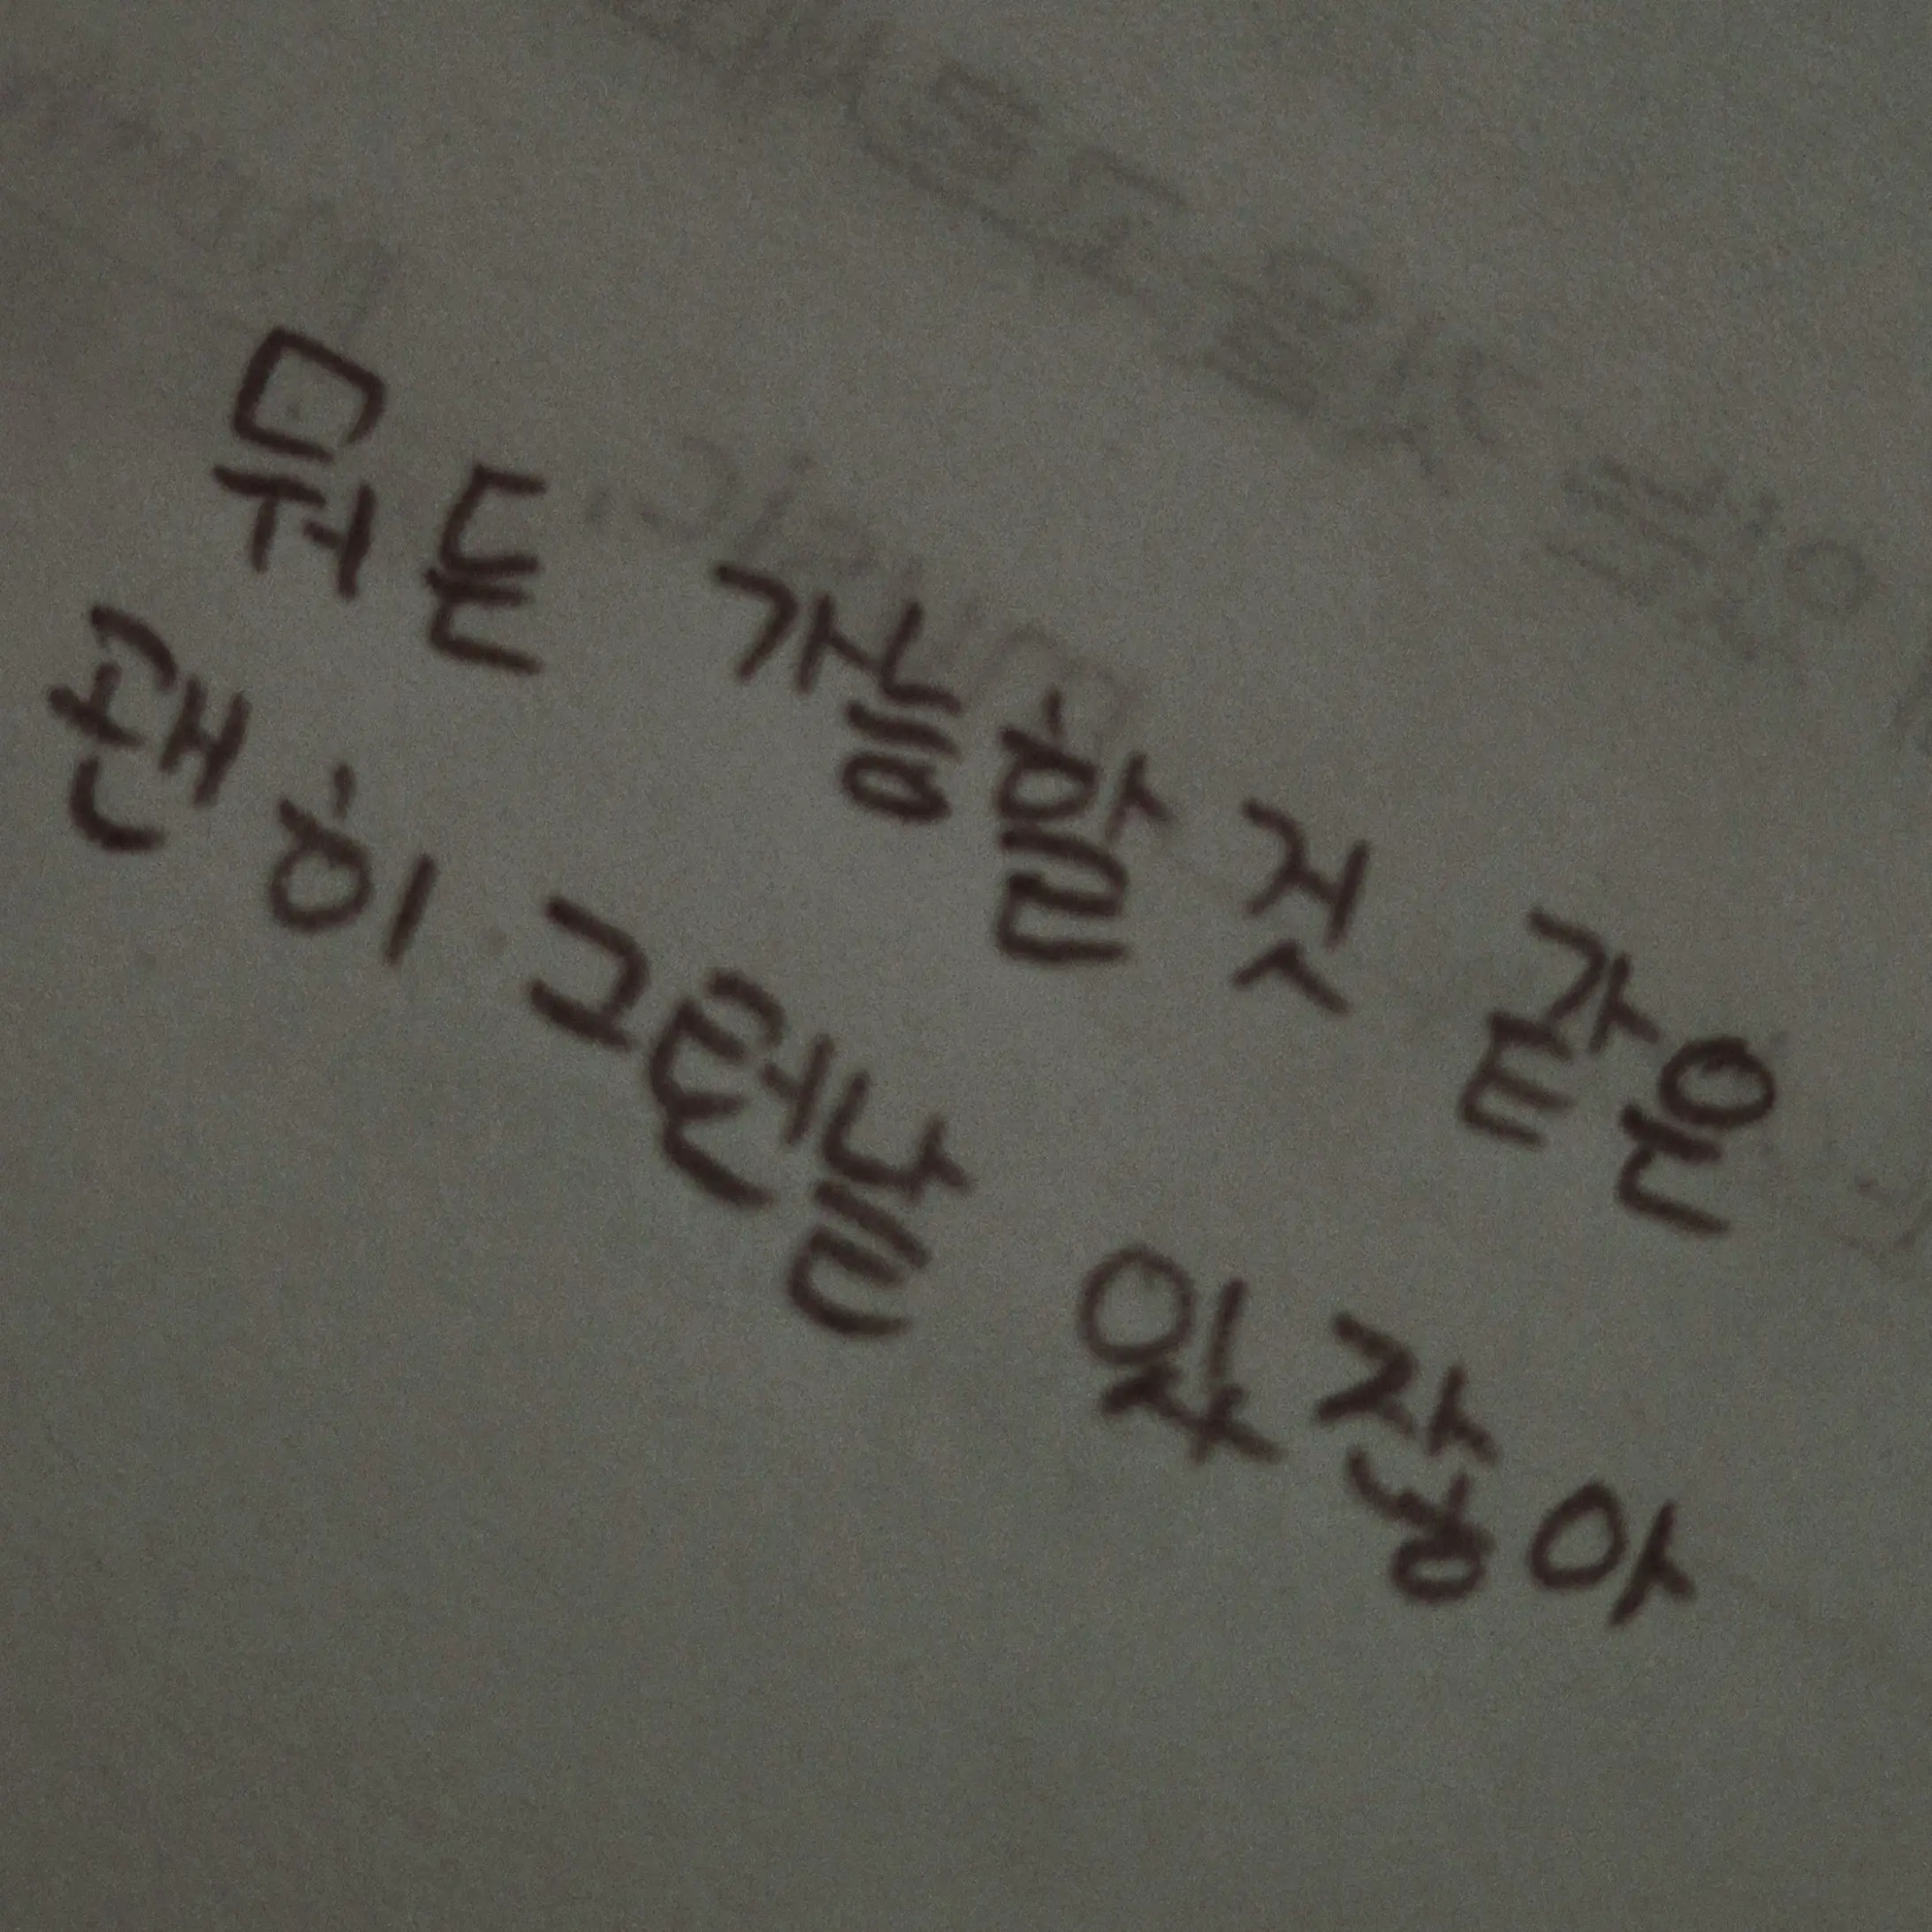 뭐든 가능할 것 같은
괜히 그런날 있잖아